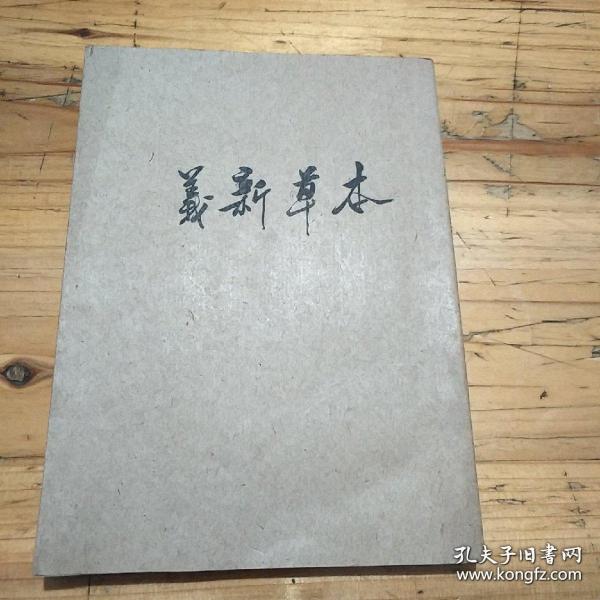 義新草本
孔夫子旧書网
www.kongfz.com